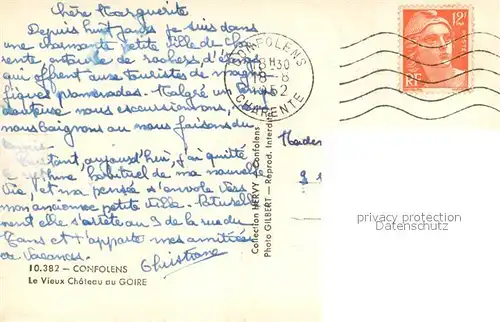 Chère Marguerite
Depuis huit jours je suis dans
une charmante petite ville de Cha-
rente, entourée de rochers d'
qui offrent aux touristes de magni-
fiques promenades. Malgré un temps
douteux nous excursionnons, nous
nous baignons ou nous faisons du
Pourtant, aujourd'hui, j'ai quitté
le rythme habituel de ma nouvelle
vie, et ma pensée s'envole vers
mon ancienne petite ville. Naturelle-
ment elle s'arrête au 9 de la rue du
et t'apporte mes amitiés
de Vacances.
Christiane
10.382 — CONFOLENS
Le Vieux Château au GOIRE
Collection HERVY — Confolens
Photo GILBERT — Réprod. Interdite
CONFOLENS
18H30
18-8
1952
CHARENTE
12F
RF
POSTES
Madem
9
privacy protection
AnsichtskartenVersand